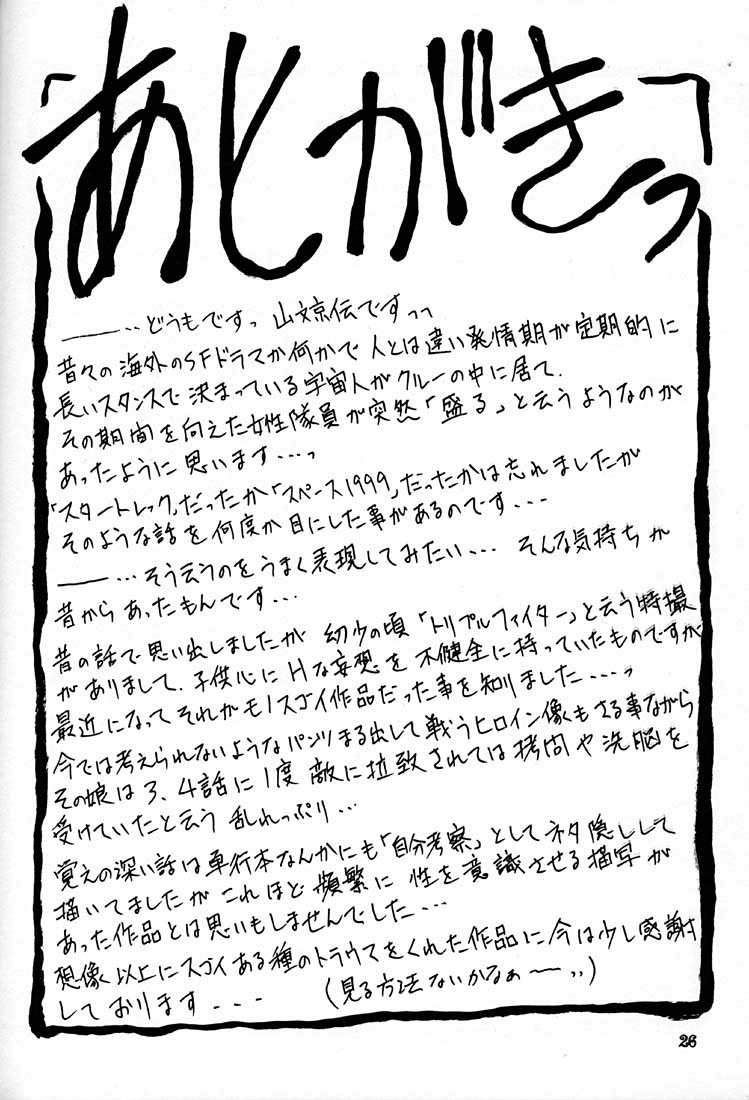 「あとがきっ」
――‥どうもですっ 山文京伝ですっっ
昔々の海外のSFドラマか何かで 人とは違い発情期が定期的に
長いスタンスで決まっている宇宙人がクルーの中に居て.
その期間を向えた女性隊員が突然「盛る」と云うようなのが
あったように思います…っ
「スタートレック」だったか「スペース1999」だったかは忘れましたが
そのような話を何度か目にした事があるのです・・・
――…そう云うのをうまく表現してみたい… そんな気持ちが
昔からあったもんです…
昔の話で思い出しましたが 幼少の頃「トリプルファイター」と云う特撮
がありまして. 子供心にHな妄想を不健全に持っていたものですが
最近になってそれがモノスゴイ作品だった事を知りました…っ
今では考えられないようなパンツまる出しで戦うヒロイン像もさる事ながら
その娘は3、4話に1度 敵に拉致されては拷問や洗脳を
受けていたと云う 乱れっぷり…
覚えの深い話は単行本なんかにも「自分考察」としてネタ隠しして
描いてましたが これほど頻繁に 性を意識させる描写が
あった作品とは思いもしませんでした…
想像以上にスゴイある種のトラウマをくれた作品に今は少し感謝
しております・・・ (見る方法ないかなぁーっっ)
26